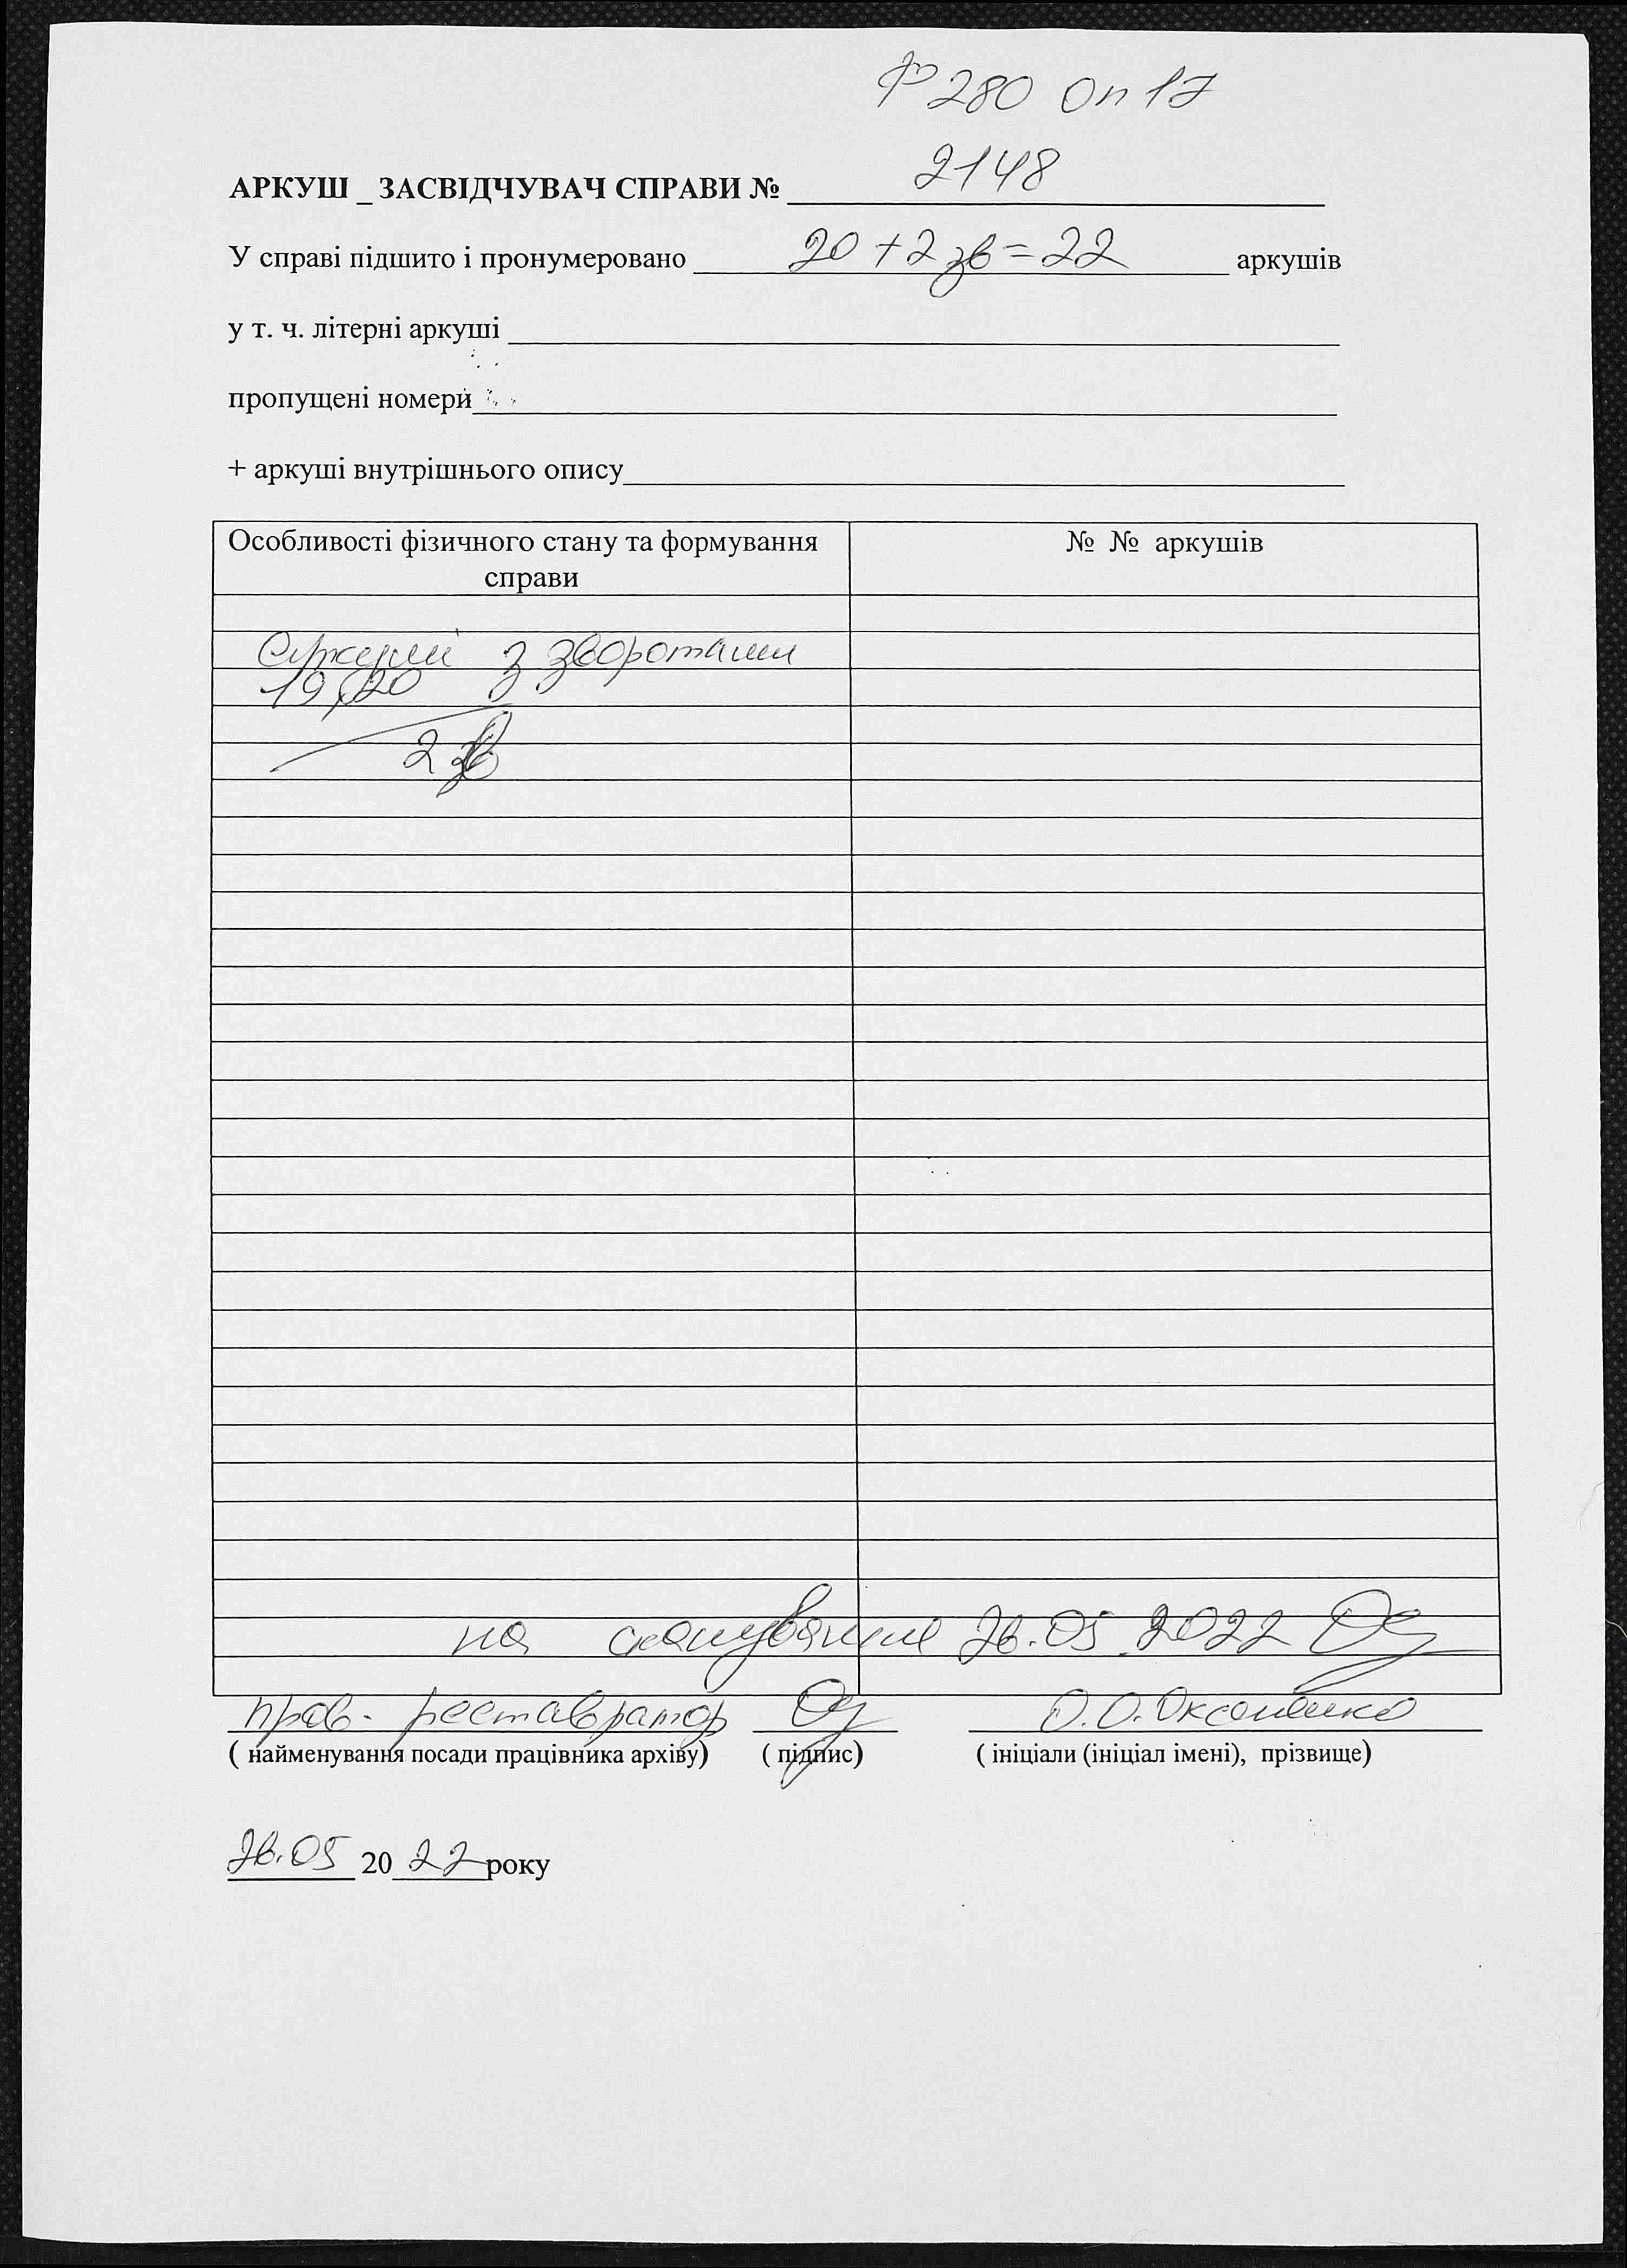 Ф 280 Оп 17
АРКУШ _ ЗАСВІДЧУВАЧ СПРАВИ № 2148
У справі підшито і пронумеровано 20 + 2 зв = 22 аркушів
у т. ч. літерні аркуші
пропущені номери
+ аркуші внутрішнього опису
Особливості фізичного стану та формування справи
№ № аркушів
Аркуші з зворотами
19, 20
2 зв
на сканування 26.05.2022
пров. реставратор О.О.Оксаненко
( найменування посади працівника архіву) ( підпис) ( ініціали (ініціал імені), прізвище)
26.05 2022 року